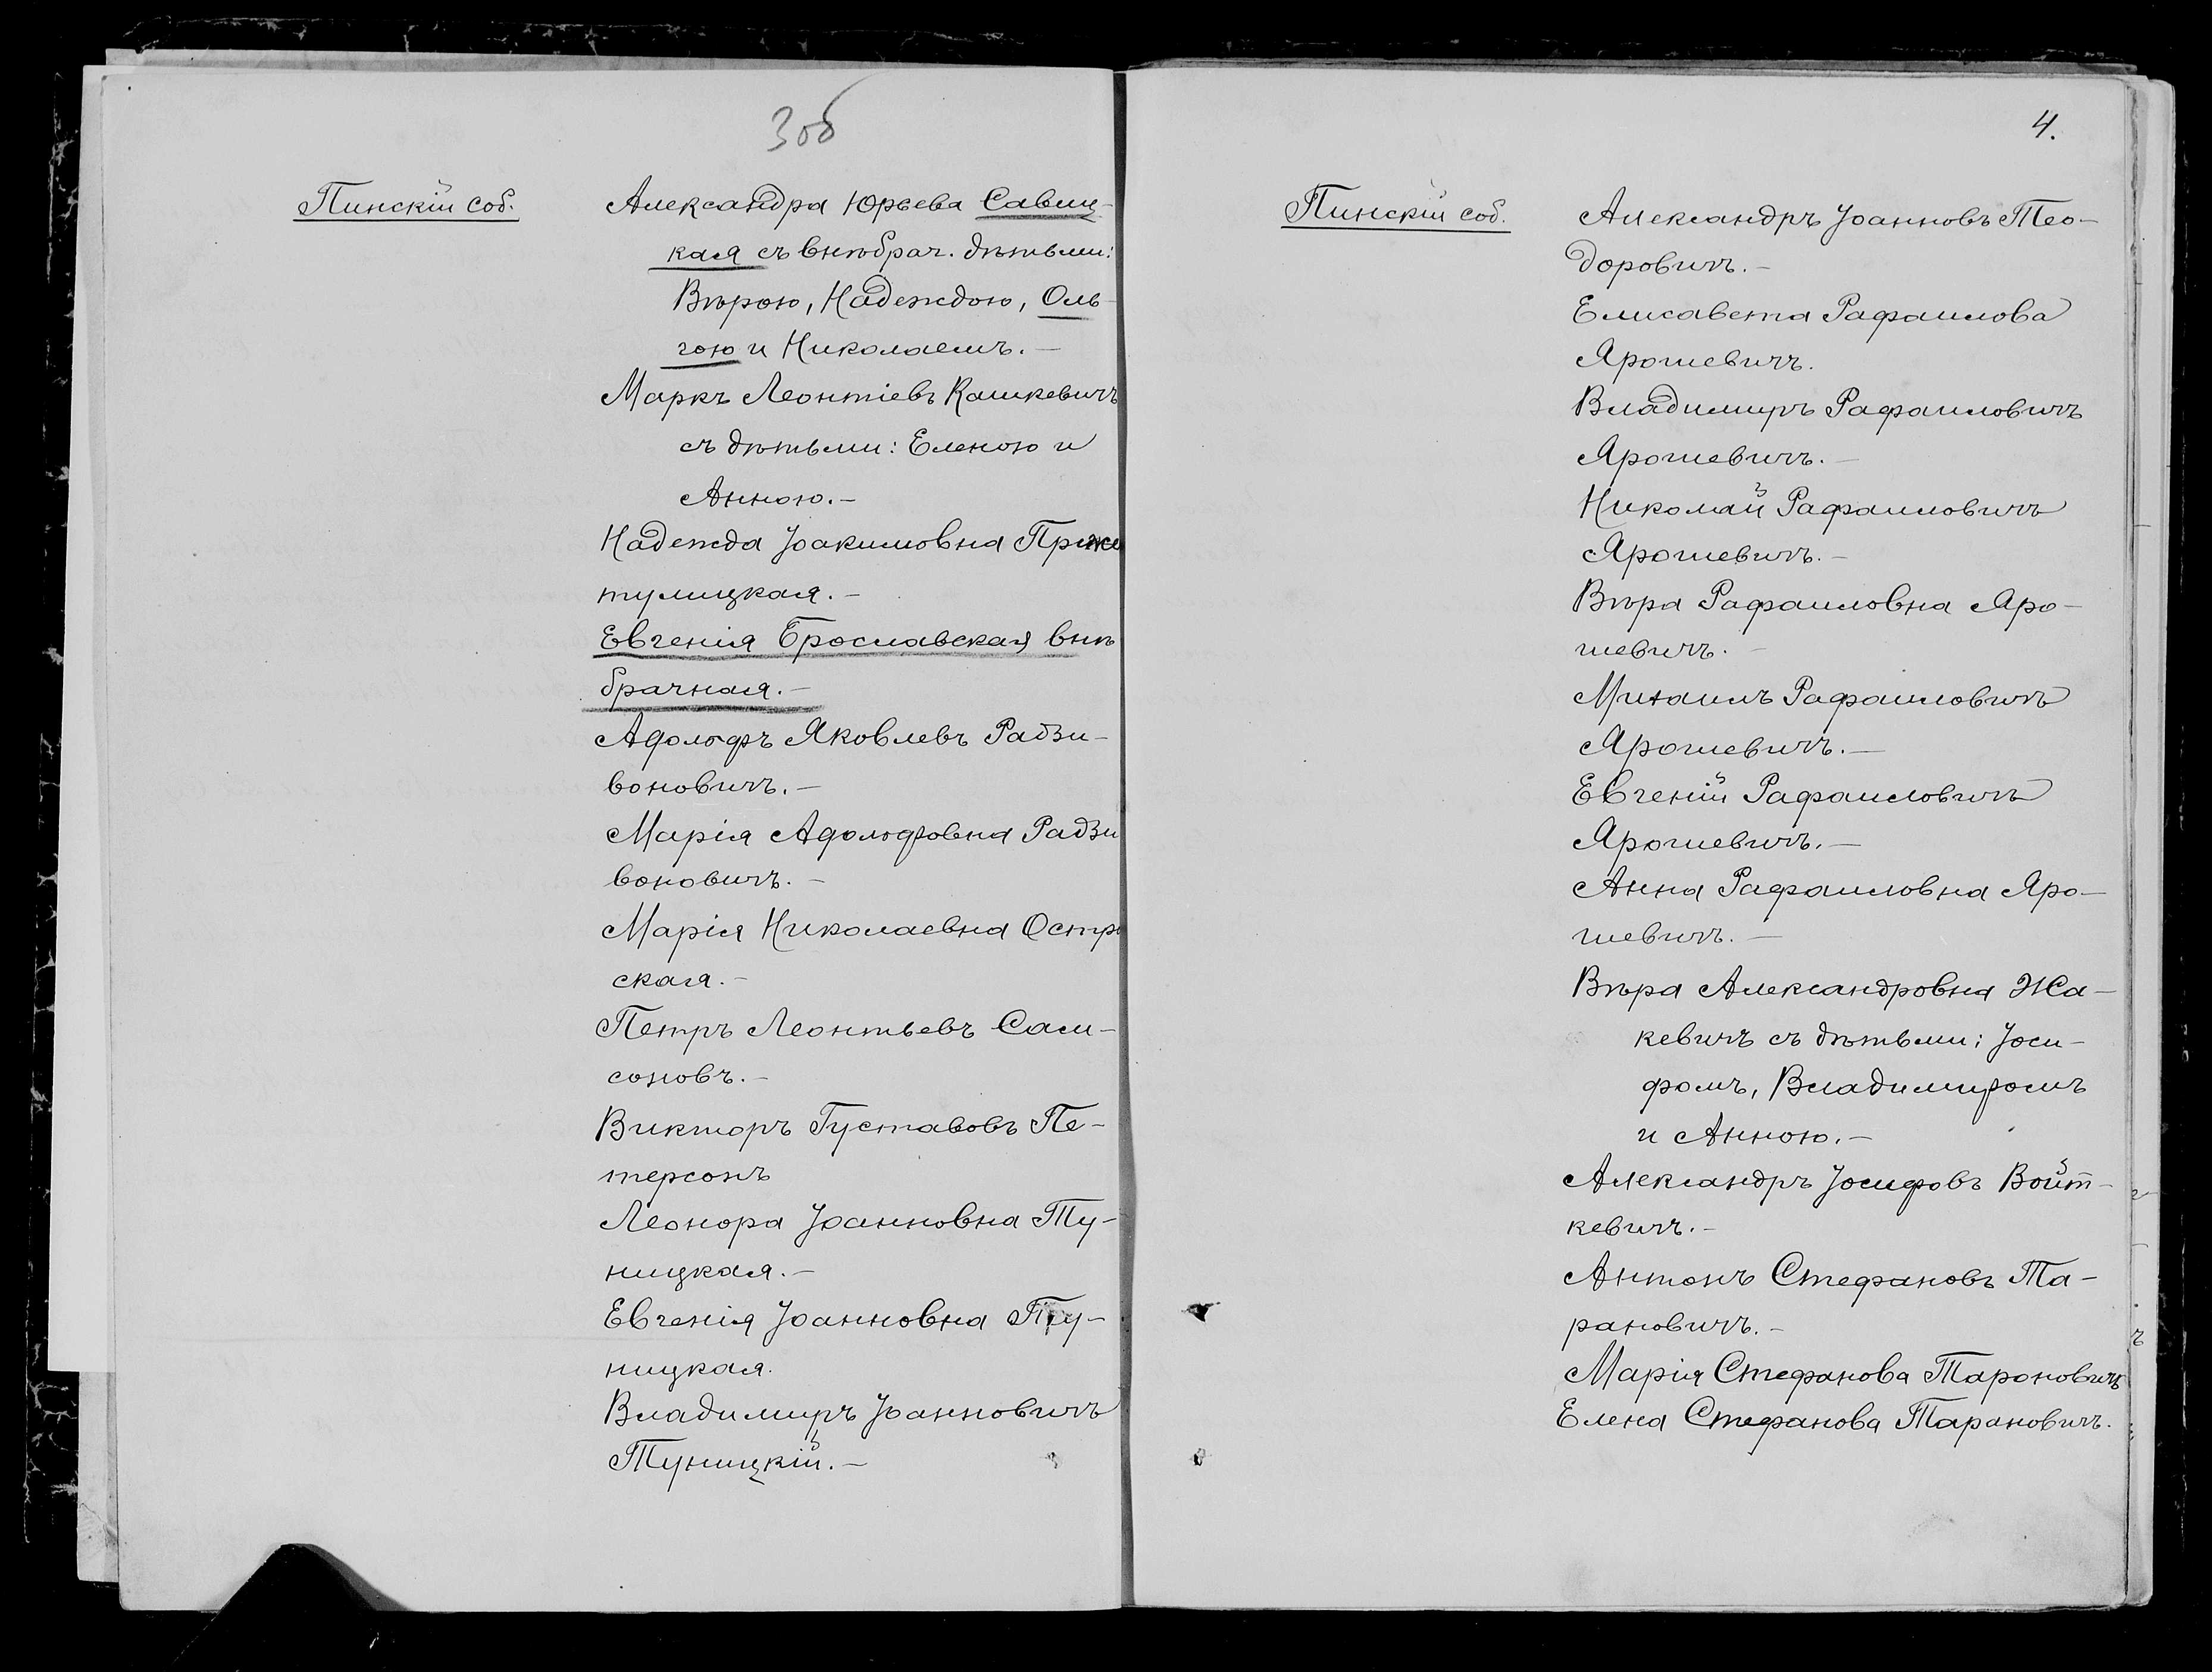 3об
Пинскій соб.
Александра Юрьева Савиц-
кая съ внѣбрач. дѣтьми:
Вѣрою, Надеждою, Оль-
гою и Николаемъ.—
Маркъ Леонтіевъ Кашкевичъ
съ дѣтьми: Еленою и
Анною.—
Надежда Іоакимовна
тулицкая.—
Евгенія Брославская внѣ
брачная.—
Адольфъ Яковлевъ Радзи-
воновичъ.—
Марія Адольфовна Радзи
воновичъ.—
Марія Николаевна
ская.—
Петръ Леонтьевъ Сам-
соновъ.—
Викторъ Густавовъ Пе-
терсонъ
Леонора Іоанновна Ту-
ницкая.—
Евгенія Іоанновна Ту-
ницкая.
Владимиръ Іоанновичъ
Туницкій.—
4.
Пинскій соб.
Александръ Іоанновъ Тео-
доровичъ.—
Елисавета Рафаилова
Ярошевичъ.
Владимиръ Рафаиловичъ
Ярошевичъ.—
Николай Рафаиловичъ
Ярошевичъ.—
Вѣра Рафаиловна Яро-
шевичъ.—
Михаилъ Рафаиловичъ
Ярошевичъ.—
Евгеній Рафаиловичъ
Ярошевичъ.—
Анна Рафаиловна Яро-
шевичъ.—
Вѣра Александровна Жа-
кевичъ съ дѣтьми: Іоси-
фомъ, Владимиромъ
и Анною.—
Александръ Іосифовъ Войт-
кевичъ.—
Антонъ Стефановъ Та-
рановичъ.—
Марія Стефанова Тарановичъ
Елена Стефанова Тарановичъ.